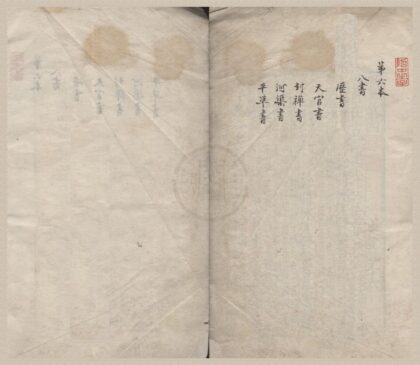 第六本
八書
歴書
天官書
封禪書
河渠書
平準書